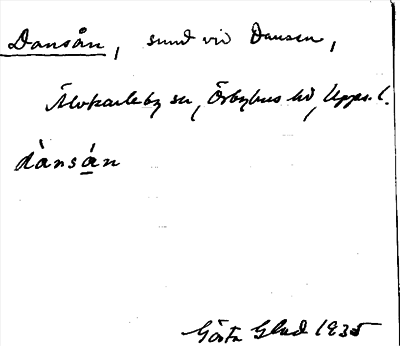 Dansån, sund vid Dansen,
Älvkarleby sn, Örbyhus hd, Upps. l.
dànsá̱n
Gösta Glad 1935